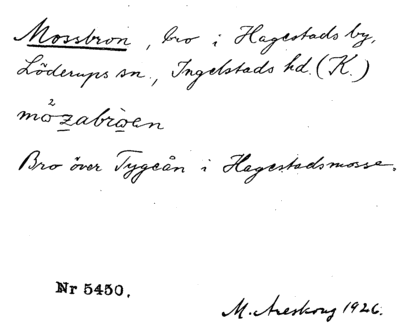 Mossbron, bro i Hagestads by,
Löderups sn., Ingelstads hd. (K.)
mò²zabròen
Bro över Tygeån i Hagestadsmosse.
Nr 5450.
M. Areskoug 1926.